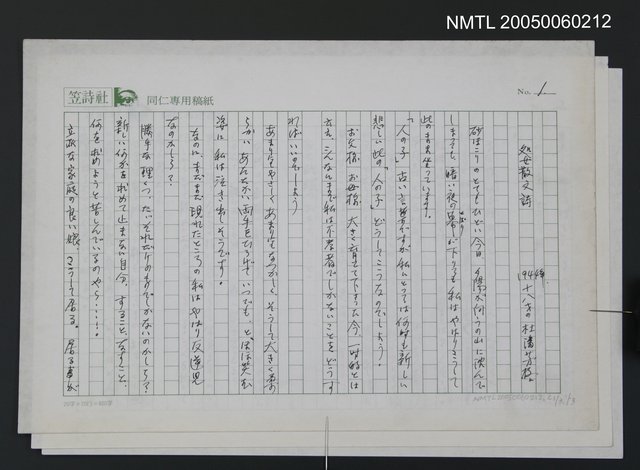 NMTL 20050060212
笠詩社 同仁専用稿紙
No. 1
処女散文詩
1944年 十八才の 杜潘芳格
砂ぼこりのとてもひどい今日 夕陽が向うの山に沈んで
しまっても、暗い夜の幕が下りても 私はやはりこうして
此のまま坐っています。
「人の子」 古い言葉ですが 私にとっては何時も新しい
悲しい此の「人の子」 どうしてこうなのでしょう。
お父様、お母様、大きく育てて下さった今 一時的とは
こんなにまで私は不孝者でしかないことをどうす
ればいいのでしょう
あまりにもやさしく あまりになつかしく そうして大きく
あたたかい 両手をひろげて いつでも
姿に 私は泣き出しそうです。
なのに、まだまだ 現れたところの私はやはり反逆児
なのかしら？
勝手な理くつ、たいそれだけのものでしかないのかしら？
新しい何かを求めて止まない自分、すること、なすこと、
何を求めようと苦しんでいるのやら・・・・！
立派な家庭の良い娘 こうして居る。
NMTL20050060212